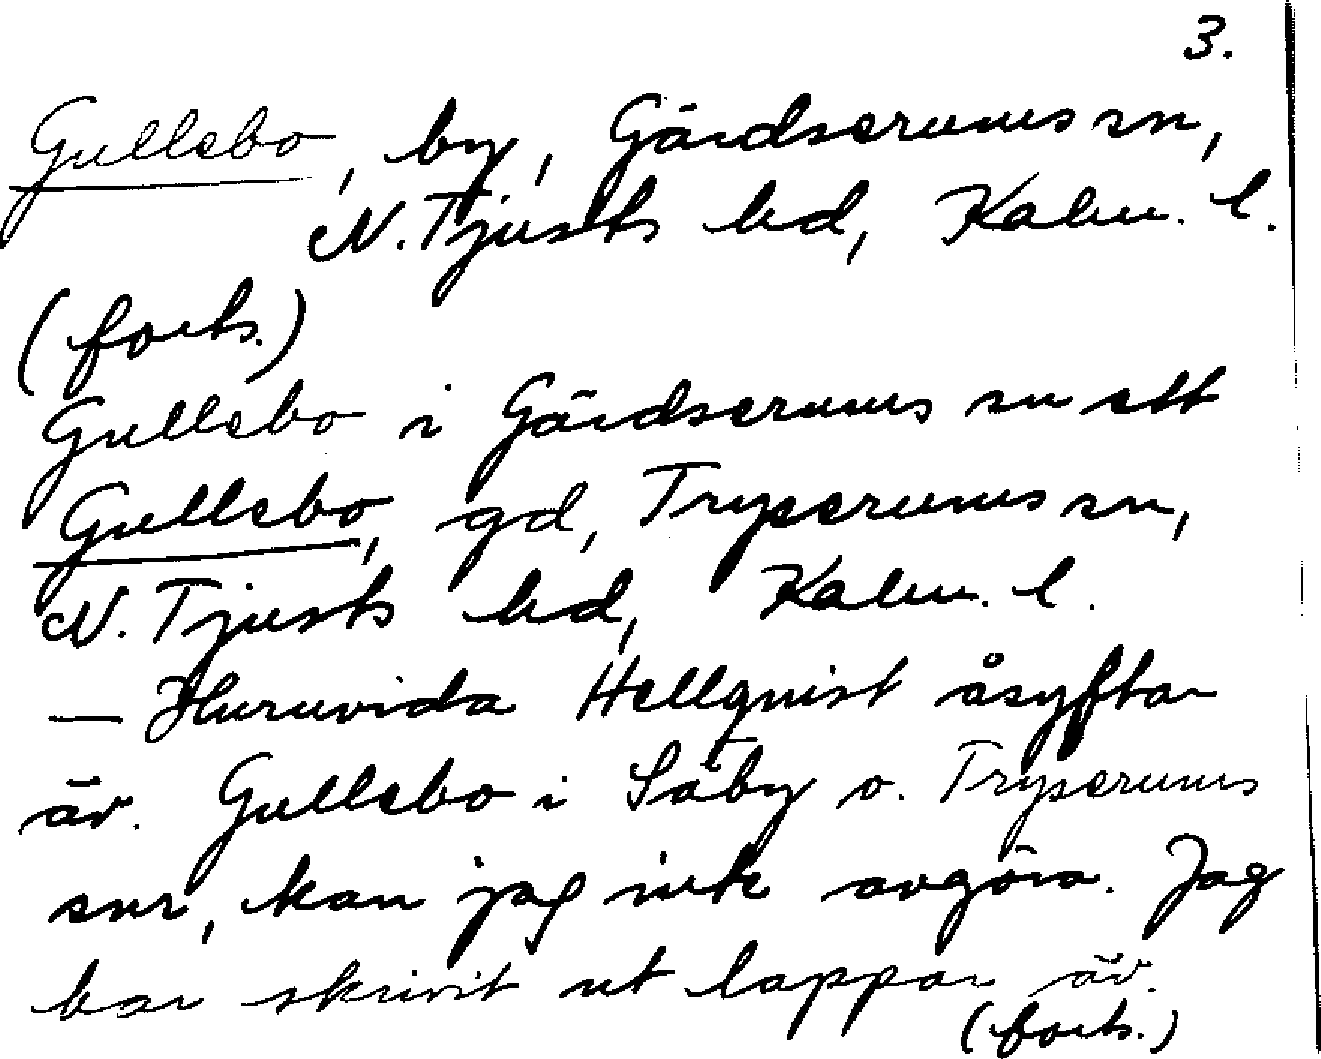 3.
Gullebo, by, Gärdserums sn,
N. Tjusts hd, Kalm. l.
(forts.)
Gullebo i Gärdserums sn ett
Gullebo, gd, Tryserums sn,
N. Tjusts hd, Kalm. l.
— Huruvida Hellquist åsyftar
äv. Gullebo i Säby o. Tryserums
snr, kan jag inte avgöra. Jag
har skrivit ut lappar äv.
(forts.)